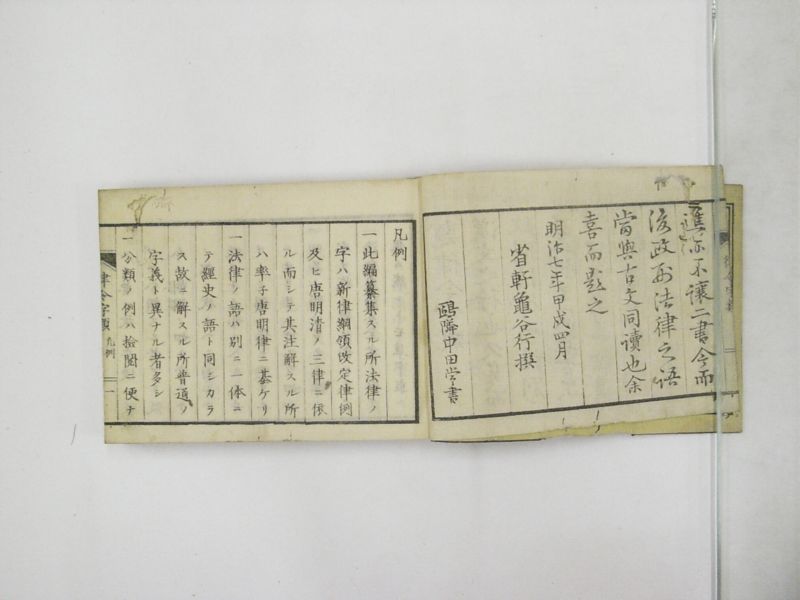 雋亦不讓二書今而
後政刑法律之語
當與古文同讀也余
喜而題之
明治七年甲戌四月
省軒龜谷行撰
鷗隣中田 書
凡例
一此編纂集スル所法律ノ
字ハ新律綱領改定律例
及ヒ唐明清ノ三律ニ依
ル而シテ其注解スル所
ハ率子唐明律ニ基ケリ
一法律ノ語ハ別ニ一体ニ
テ經史ノ語ト同シカラ
ス故ニ解スル所普通ノ
字義ト異ナル者多シ
一分類ノ例ハ捡閲ニ便ナ
律令字類 凡例